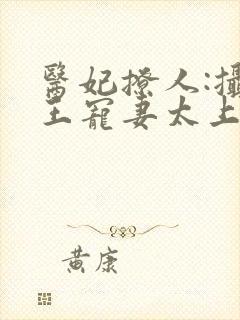 醫妃撩人:攝
王寵妻太上
黃康